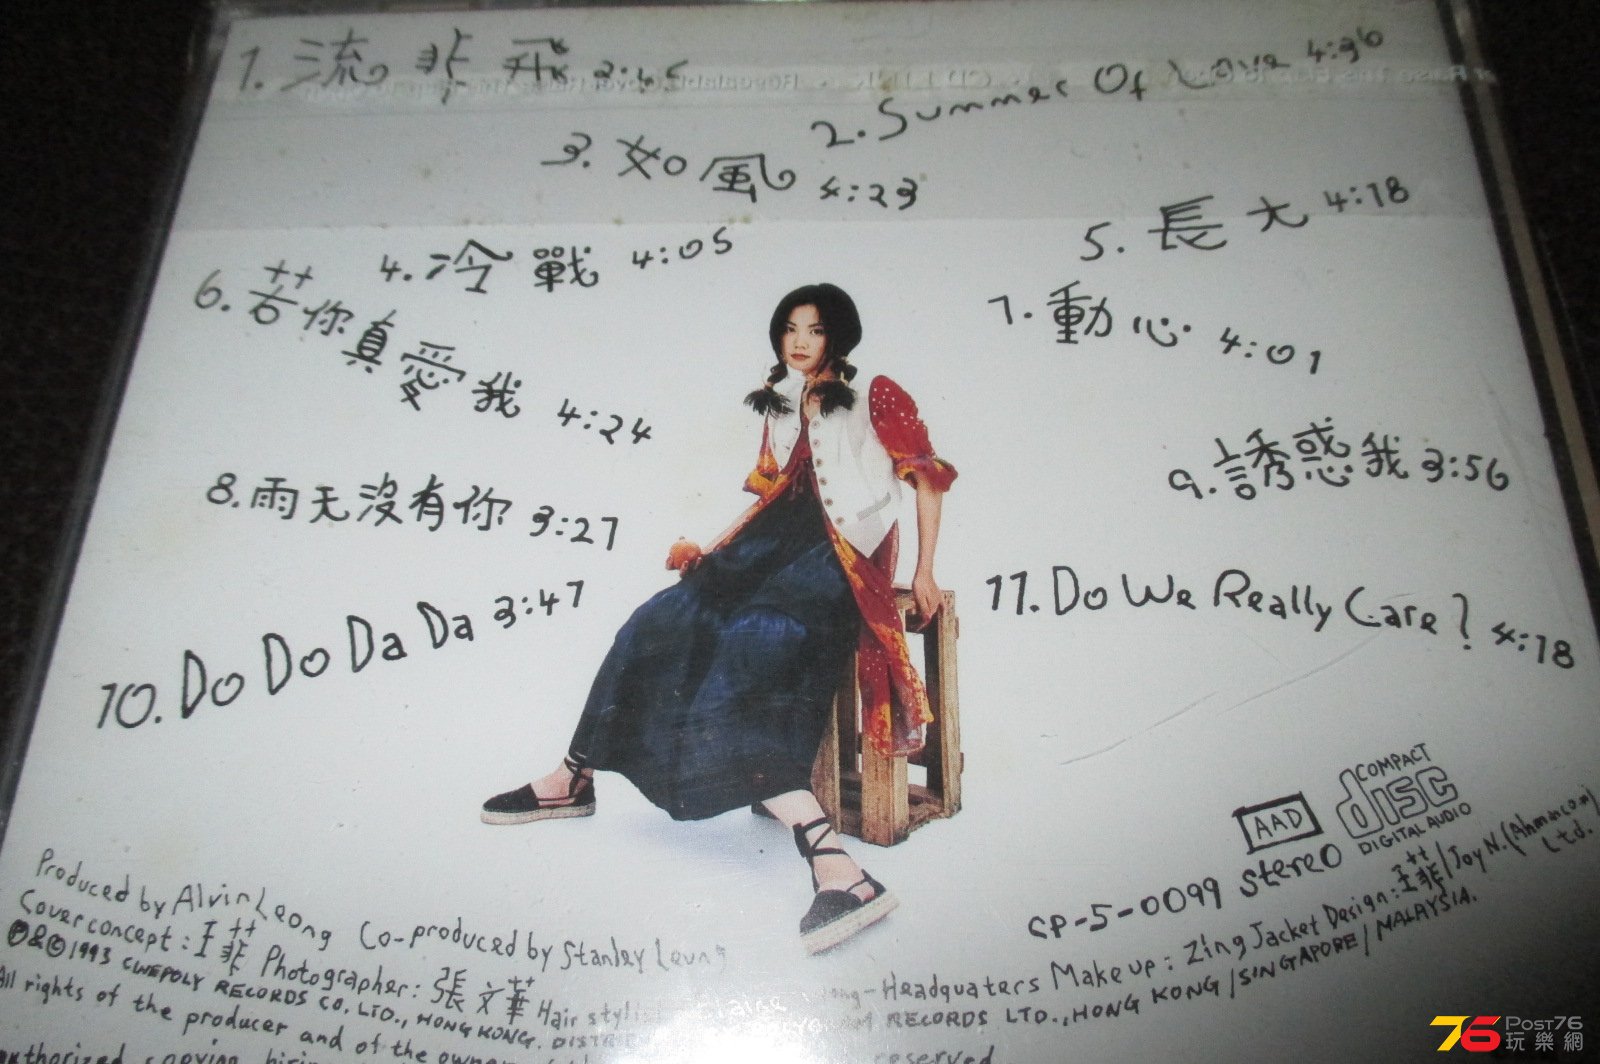 1. 流非飛 3:45
2. Summer Of Love 4:36
3. 如風 4:23
4. 冷戰 4:05
5. 長大 4:18
6. 若你真愛我 4:24
7. 動心 4:01
8. 雨天沒有你 3:27
9. 誘惑我 3:56
10. Do Do Da Da 3:47
11. Do We Really Care? 4:18
COMPACT
disc
DIGITAL AUDIO
AAD
CP-5-0099 stereo
Produced by Alvin Leong Co-produced by Stanley Leung
Cover concept: 王菲 Photographer: 張文華 Hair stylist
-Headquaters Make up: Zing Jacket Design: 王菲/Joy N. (Ahmm co.)
Ltd.
Ⓟ&©1993 CINEPOLY RECORDS CO. LTD., HONG KONG.
RECORDS LTD., HONG KONG/SINGAPORE/MALAYSIA.
All rights of the producer and of the owner
reserved
copying
76 Post76
玩樂網